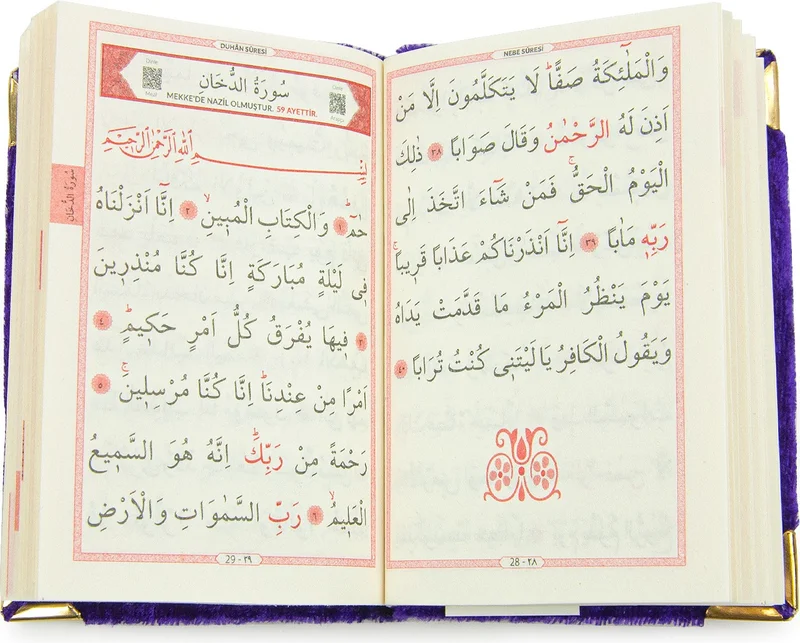 NEBE SÛRESİ
وَالْمَلٰٓئِكَةُ صَفًّاۜ لَا يَتَكَلَّمُونَ اِلَّا مَنْ
اَذِنَ لَهُ الرَّحْمٰنُ وَقَالَ صَوَاباً ٣٨ ذٰلِكَ
الْيَوْمُ الْحَقُّۚ فَمَنْ شَٓاءَ اتَّخَذَ اِلٰى
رَبِّهٖ مَاٰباً ٣٩ اِنَّٓا اَنْذَرْنَاكُمْ عَذَاباً قَرٖيباًۚ
يَوْمَ يَنْظُرُ الْمَرْءُ مَا قَدَّمَتْ يَدَاهُ
وَيَقُولُ الْكَافِرُ يَا لَيْتَنٖي كُنْتُ تُرَاباً ٤٠
28 - ٢٨
DUHÂN SÛRESİ
Dinle
سُورَةُ الدُّخَانِ
MEKKE'DE NAZİL OLMUŞTUR. 59 AYETTİR.
سُورَةُ الدُّخَانِ
بِسْمِ اللّٰهِ الرَّحْمٰنِ الرَّحٖيمِ
حٰمٓۜ ١ وَالْكِتَابِ الْمُبٖينِۙ ٢ اِنَّٓا اَنْزَلْنَاهُ
فٖي لَيْلَةٍ مُبَارَكَةٍ اِنَّا كُنَّا مُنْذِرٖينَ
٣ فٖيهَا يُفْرَقُ كُلُّ اَمْرٍ حَكٖيمٍۜ ٤
اَمْراً مِنْ عِنْدِنَاۜ اِنَّا كُنَّا مُرْسِلٖينَۚ ٥
رَحْمَةً مِنْ رَبِّكَۜ اِنَّهُ هُوَ السَّمٖيعُ
الْعَلٖيمُۙ ٦ رَبِّ السَّمٰوَاتِ وَالْاَرْضِ
29 - ٢٩